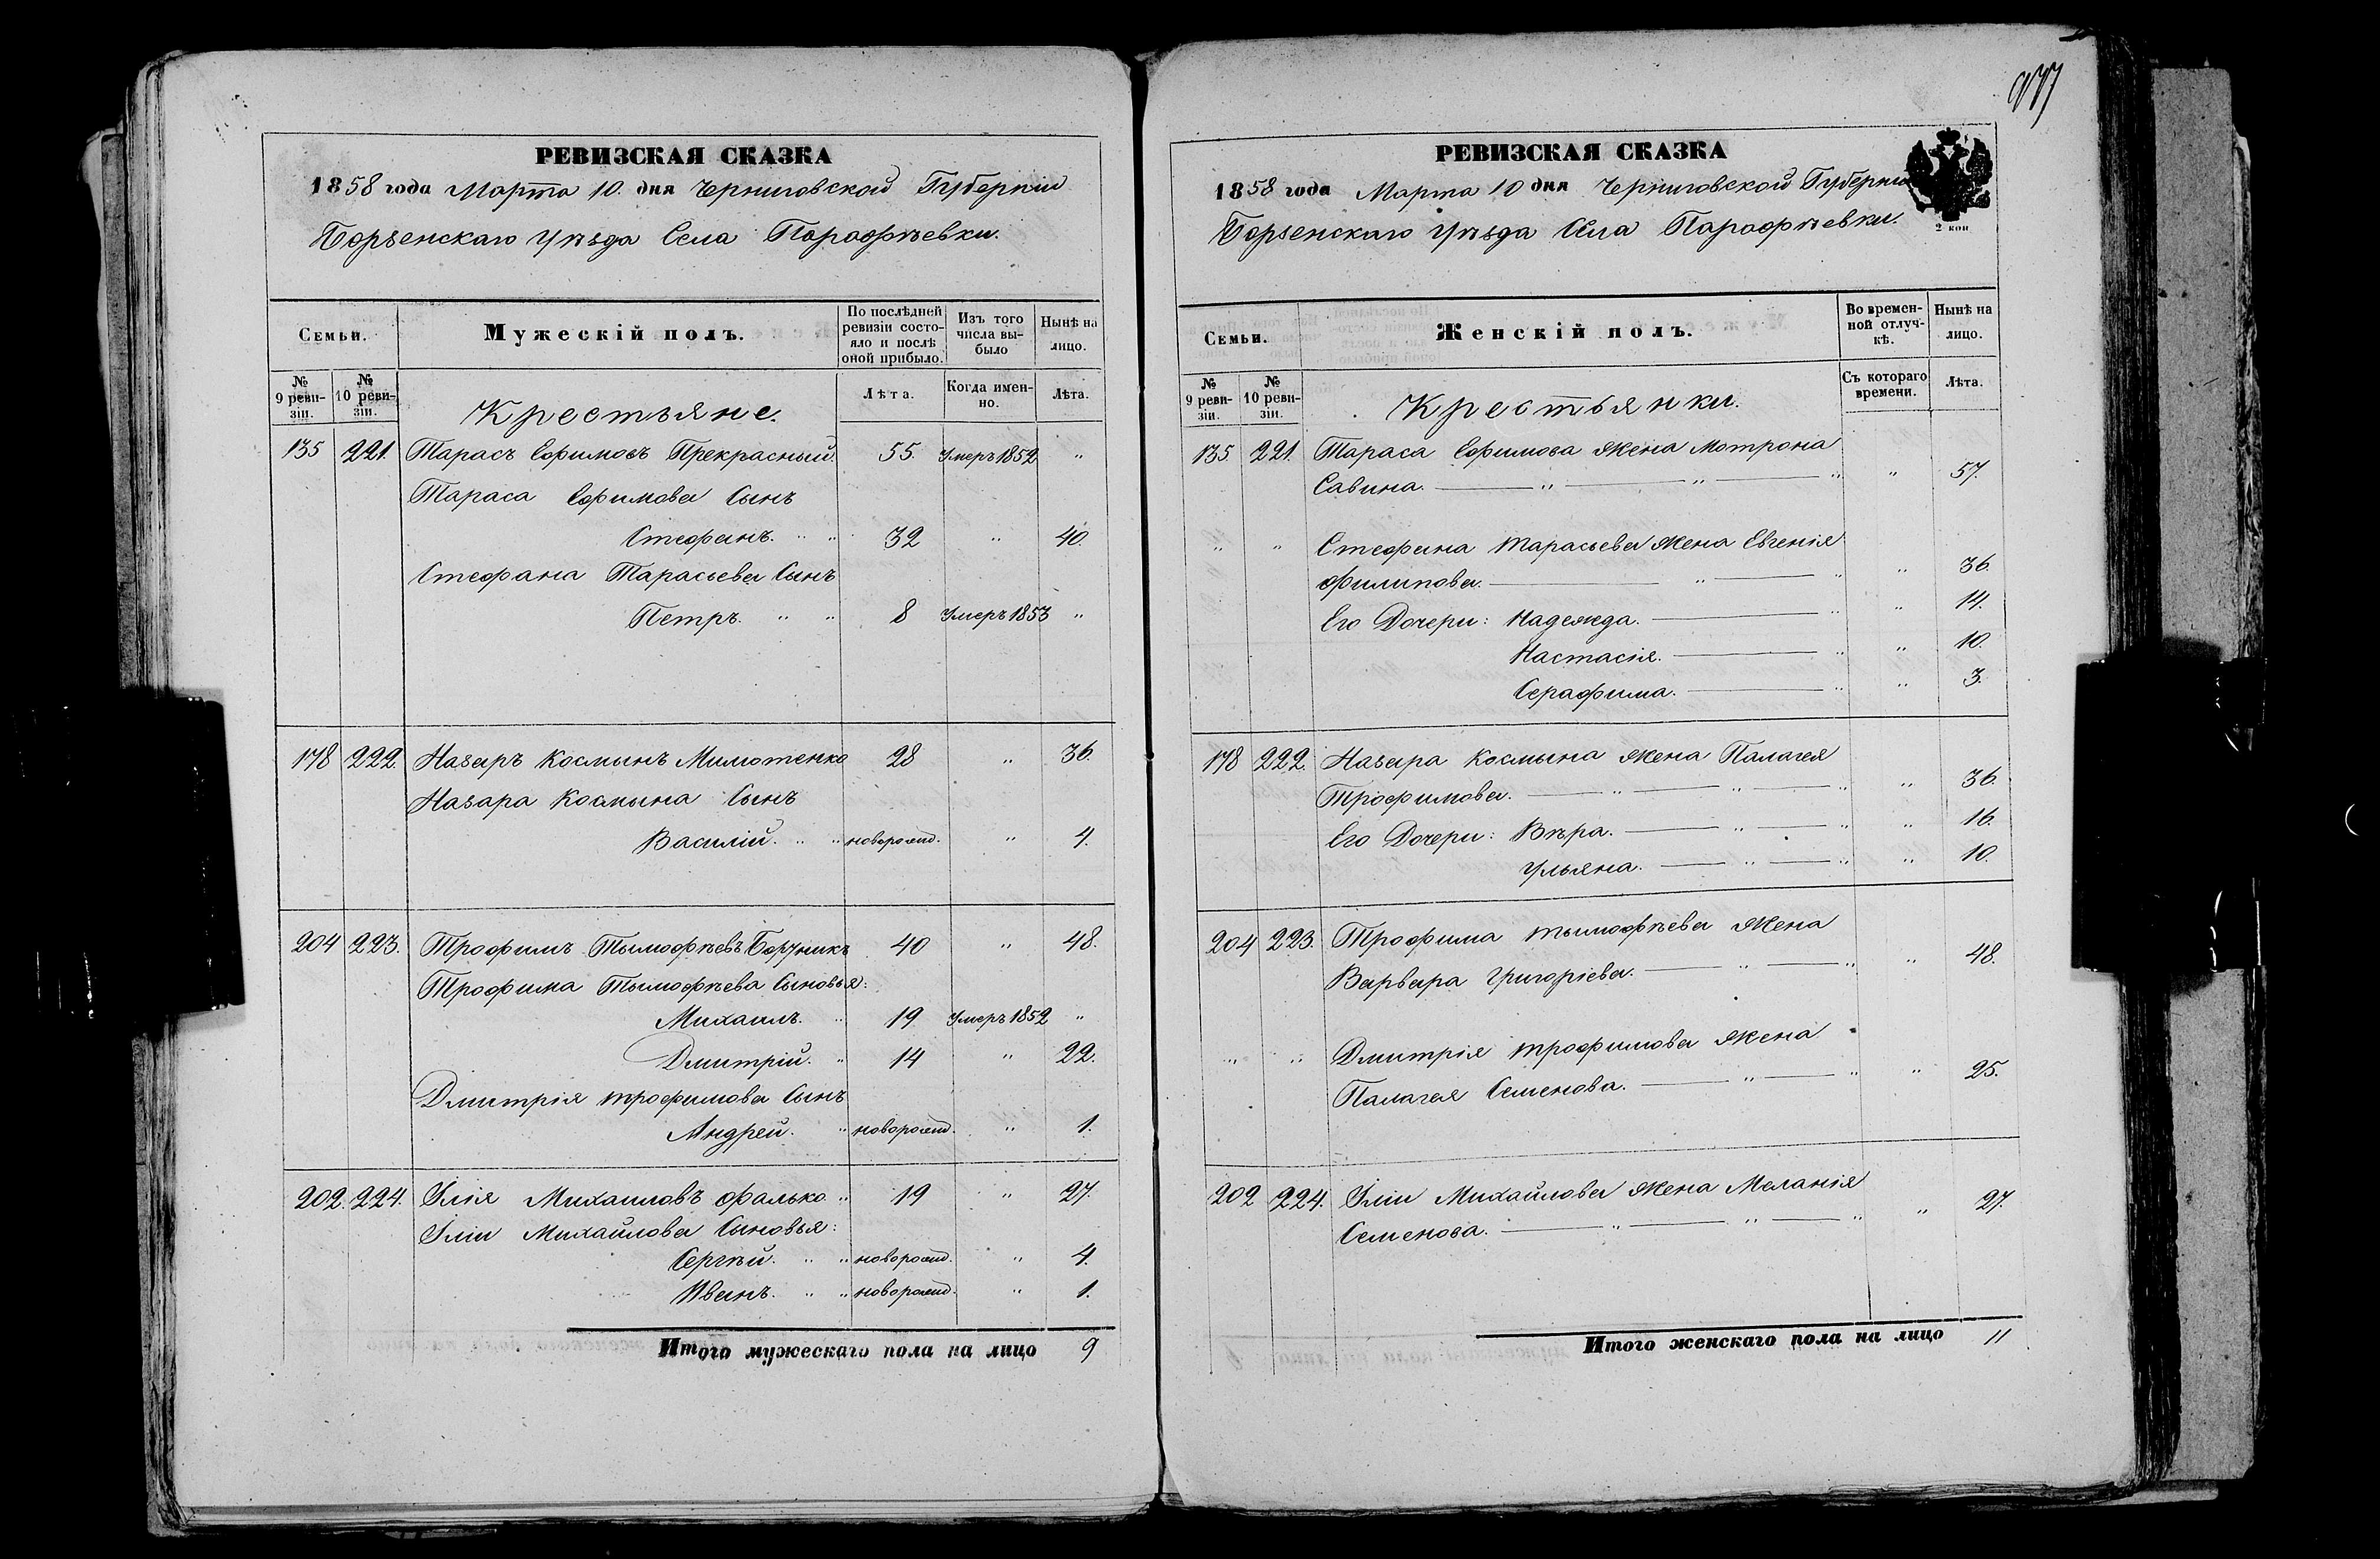 977
РЕВИЗСКАЯ СКАЗКА
1858 года Марта 10. дня Черниговской Губерніи
Борзенскаго Уѣзда Села Парафѣевки.
Семьи. Мужескій полъ. По послѣдней ревизіи состояло и послѣ оной прибыло. Изъ того числа выбыло Нынѣ на лицо.
№ 9 ревизіи. № 10 ревизіи. Лѣта. Когда именно. Лѣта.
Крестьяне.
135 221. Тарасъ Ефимовъ Прекрасный. 55. Умеръ 1852 "
Тараса Ефимова Сынъ
Стефанъ. " " 32 " 40.
Стефана Тарасьева Сынъ
Петръ. " " 8 Умеръ 1853 "
178 222. Назаръ Космынъ 28 " 36.
Назара Космына Сынъ
Василій. " " новорожд. " 4.
204 223. Трофимъ Тымофѣевъ 40 " 48.
Трофима Тымофѣева Сыновья:
Михаилъ. " 19 Умеръ 1852 "
Дмитрій. " 14 " 22.
Дмитрія трофимова Сынъ
Андрей. " новорожд. " 1.
202. 224. Илія Михаиловъ фалько " 19 " 27.
Иліи Михайлова Сыновья:
Сергѣй. " " новорожд. " 4.
Иванъ. " " новорожд. " 1.
Итого мужескаго пола на лицо 9
РЕВИЗСКАЯ СКАЗКА
1858 года Марта 10 дня Черниговской Губерніи
Борзенскаго Уѣзда Села Парафѣевки.
2 коп
Семьи. Женскій полъ. Во временной отлучкѣ. Нынѣ на лицо.
№ 9 ревизіи. № 10 ревизіи. Съ котораго времени. Лѣта.
Крестьянки.
135. 221. Тараса Ефимова жена Мотрона
Савина. " " " " 57.
" " Стефана тарасьева жена Евгенія
филипова. " " " 36.
Его Дочери: Надежда. " " 14.
Настасія. " " 10.
Серафима. " " 3.
178 222. Назара Космына жена Палагея
Трофимова. " " " " 36.
Его Дочери: Вѣра. " " " 16.
Ульяна. " " " 10.
204 223. Трофима тымофѣева жена
Варвара Григоріева. " " " 48.
" " Дмитрія трофимова жена
Палагея Семенова. " " " 25.
202 224. Иліи Михайлова жена Меланія
Семенова. " " " " 27.
Итого женскаго пола на лицо 11